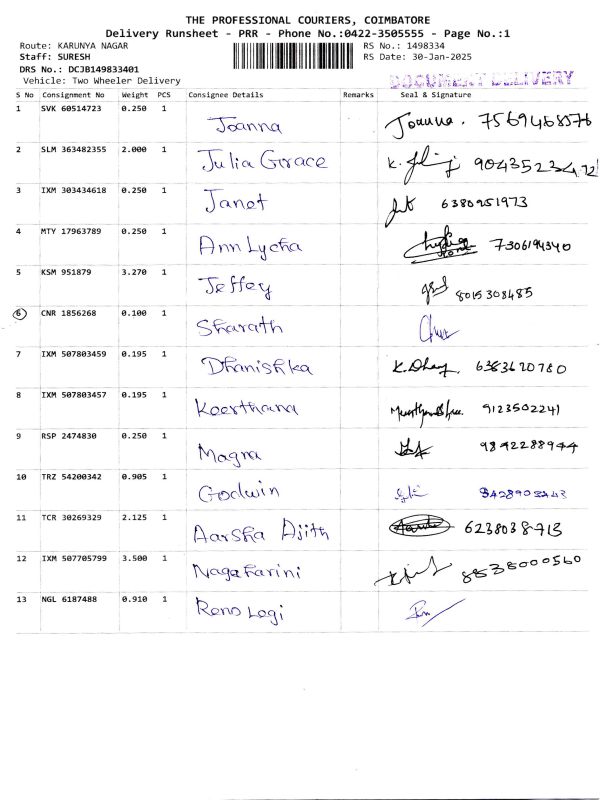 THE PROFESSIONAL COURIERS, COIMBATORE
Delivery Runsheet - PRR - Phone No.:0422-3505555 - Page No.:1
Route: KARUNYA NAGAR RS No.: 1498334
Staff: SURESH RS Date: 30-Jan-2025
DRS No.: DCJB149833401
Vehicle: Two Wheeler Delivery DOCUMENT DELIVERY
S No Consignment No Weight PCS Consignee Details Remarks Seal & Signature
1 SVK 60514723 0.250 1 Joanna Joanna. 7569468576
2 SLM 363482355 2.000 1 Julia Grace K. 9043523472
3 IXM 303434618 0.250 1 Janet 6380951973
4 MTY 17963789 0.250 1 Ann Lycha 7306194340
5 KSM 951879 3.270 1 Jeffey 8015308485
6 CNR 1856268 0.100 1 Sharath
7 IXM 507803459 0.195 1 Dhanishka K. Dhany. 6383620780
8 IXM 507803457 0.195 1 Keerthana 9123502241
9 RSP 2474830 0.250 1 Magna 9892288944
10 TRZ 54200342 0.905 1 Godwin
11 TCR 30269329 2.125 1 Aarsha Ajith 6238038713
12 IXM 507705799 3.500 1 Nagaharini 88838000560
13 NGL 6187488 0.910 1 Reno Legi